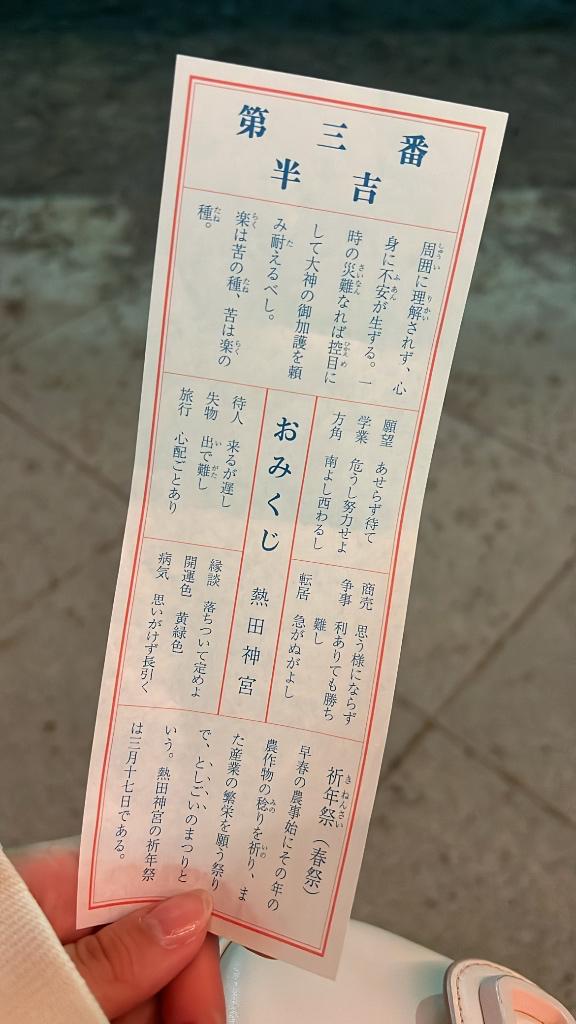 第三番
半吉
周囲に理解されず、心
身に不安が生ずる。一
時の災難なれば控目に
して大神の御加護を頼
み耐えるべし。
楽は苦の種、苦は楽の
種。
願望 あせらず待て
学業 危うし努力せよ
方角 南よし西わるし
商売 思う様にならず
争事 利ありても勝ち
難し
転居 急がぬがよし
おみくじ 熱田神宮
待人 来るが遅し
失物 出で難し
旅行 心配ごとあり
縁談 落ちついて定めよ
開運色 黄緑色
病気 思いがけず長引く
祈年祭(春祭)
早春の農事始にその年の
農作物の稔りを祈り、ま
た産業の繁栄を願う祭り
で、としごいのまつりと
いう。熱田神宮の祈年祭
は三月十七日である。